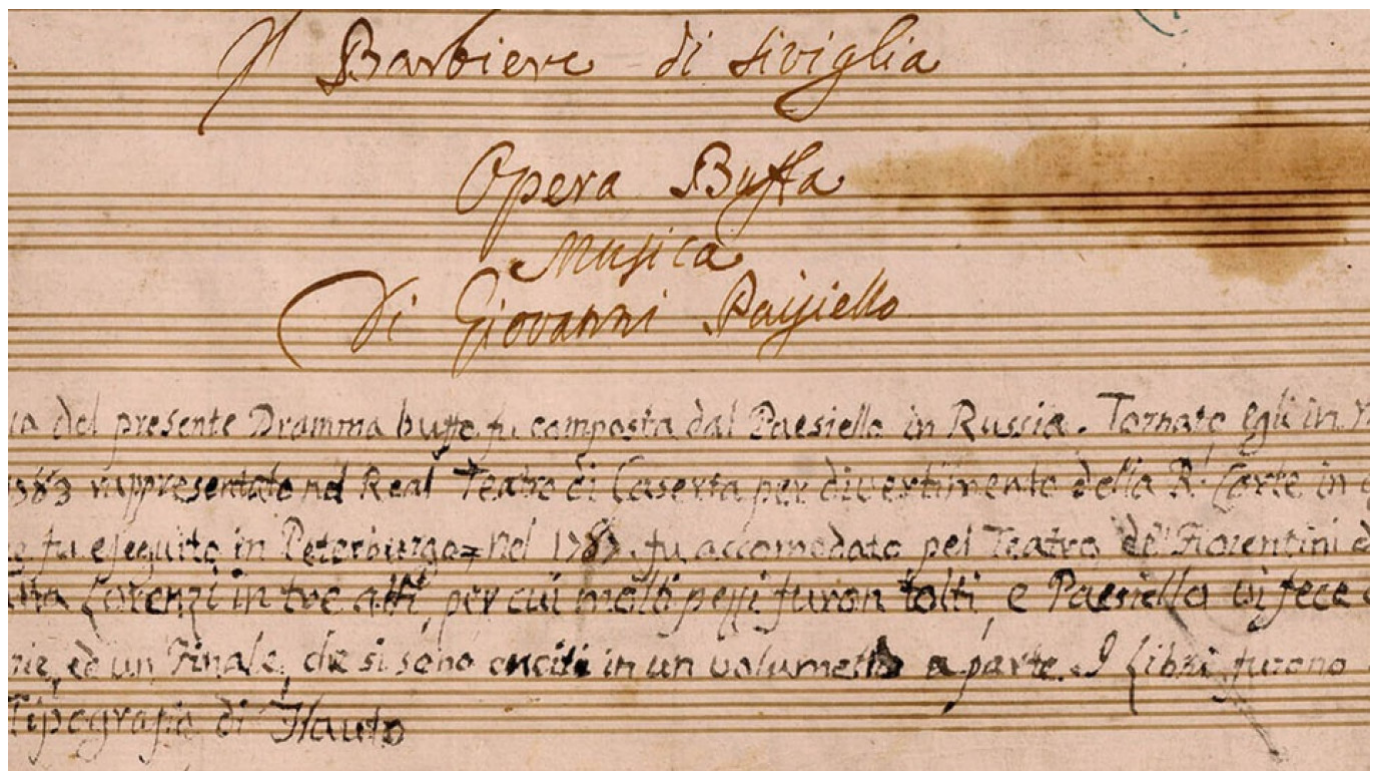 Il Barbiere di Siviglia
Opera Buffa
Musica
Di Giovanni Paisiello
del presente Dramma buffo fu composta dal Paesiello in Russia. Tornato egli in
rappresentato nel Real Teatro di Caserta per divertimento della R. Corte in
fu eseguito in Peterburgo = nel 1787. fu accomodato pel Teatro de' Fiorentini
Lorenzi in tre atti, per cui molti pezzi furon tolti, e Paesiello vi fece
ed un Finale, che si sono uniti in un volumetto a parte. I Libri furono
Tipografia di Flauto